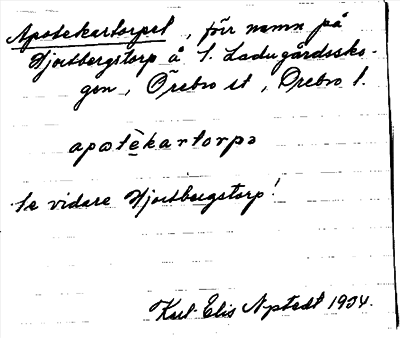 Apotekartorpet, förr namn på
Hjortbergstorp å S. Ladugårdssko-
gen, Örebro st, Örebro l.
apotèkartorpə
Se vidare Hjortbergstorp!
Karl-Elis Nystedt 1934.